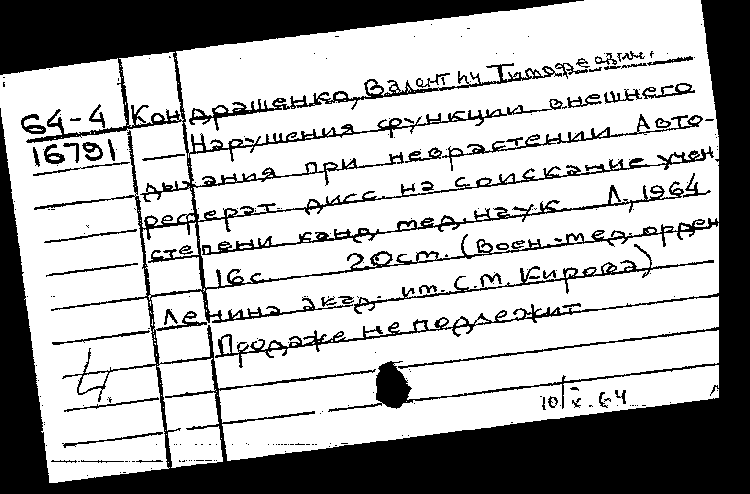 64-4
16791
Кондрашенко, Валентин Тимофеевич.
Нарушения функции внешнего
дыхания при неврастении Авто-
реферат дисс. на соискание учен.
степени канд. мед. наук Л., 1964.
16 с. 20 см. (Воен.-мед. орден
Ленина акад. им. С.М. Кирова)
Продаже не подлежит
4.
10/X-64